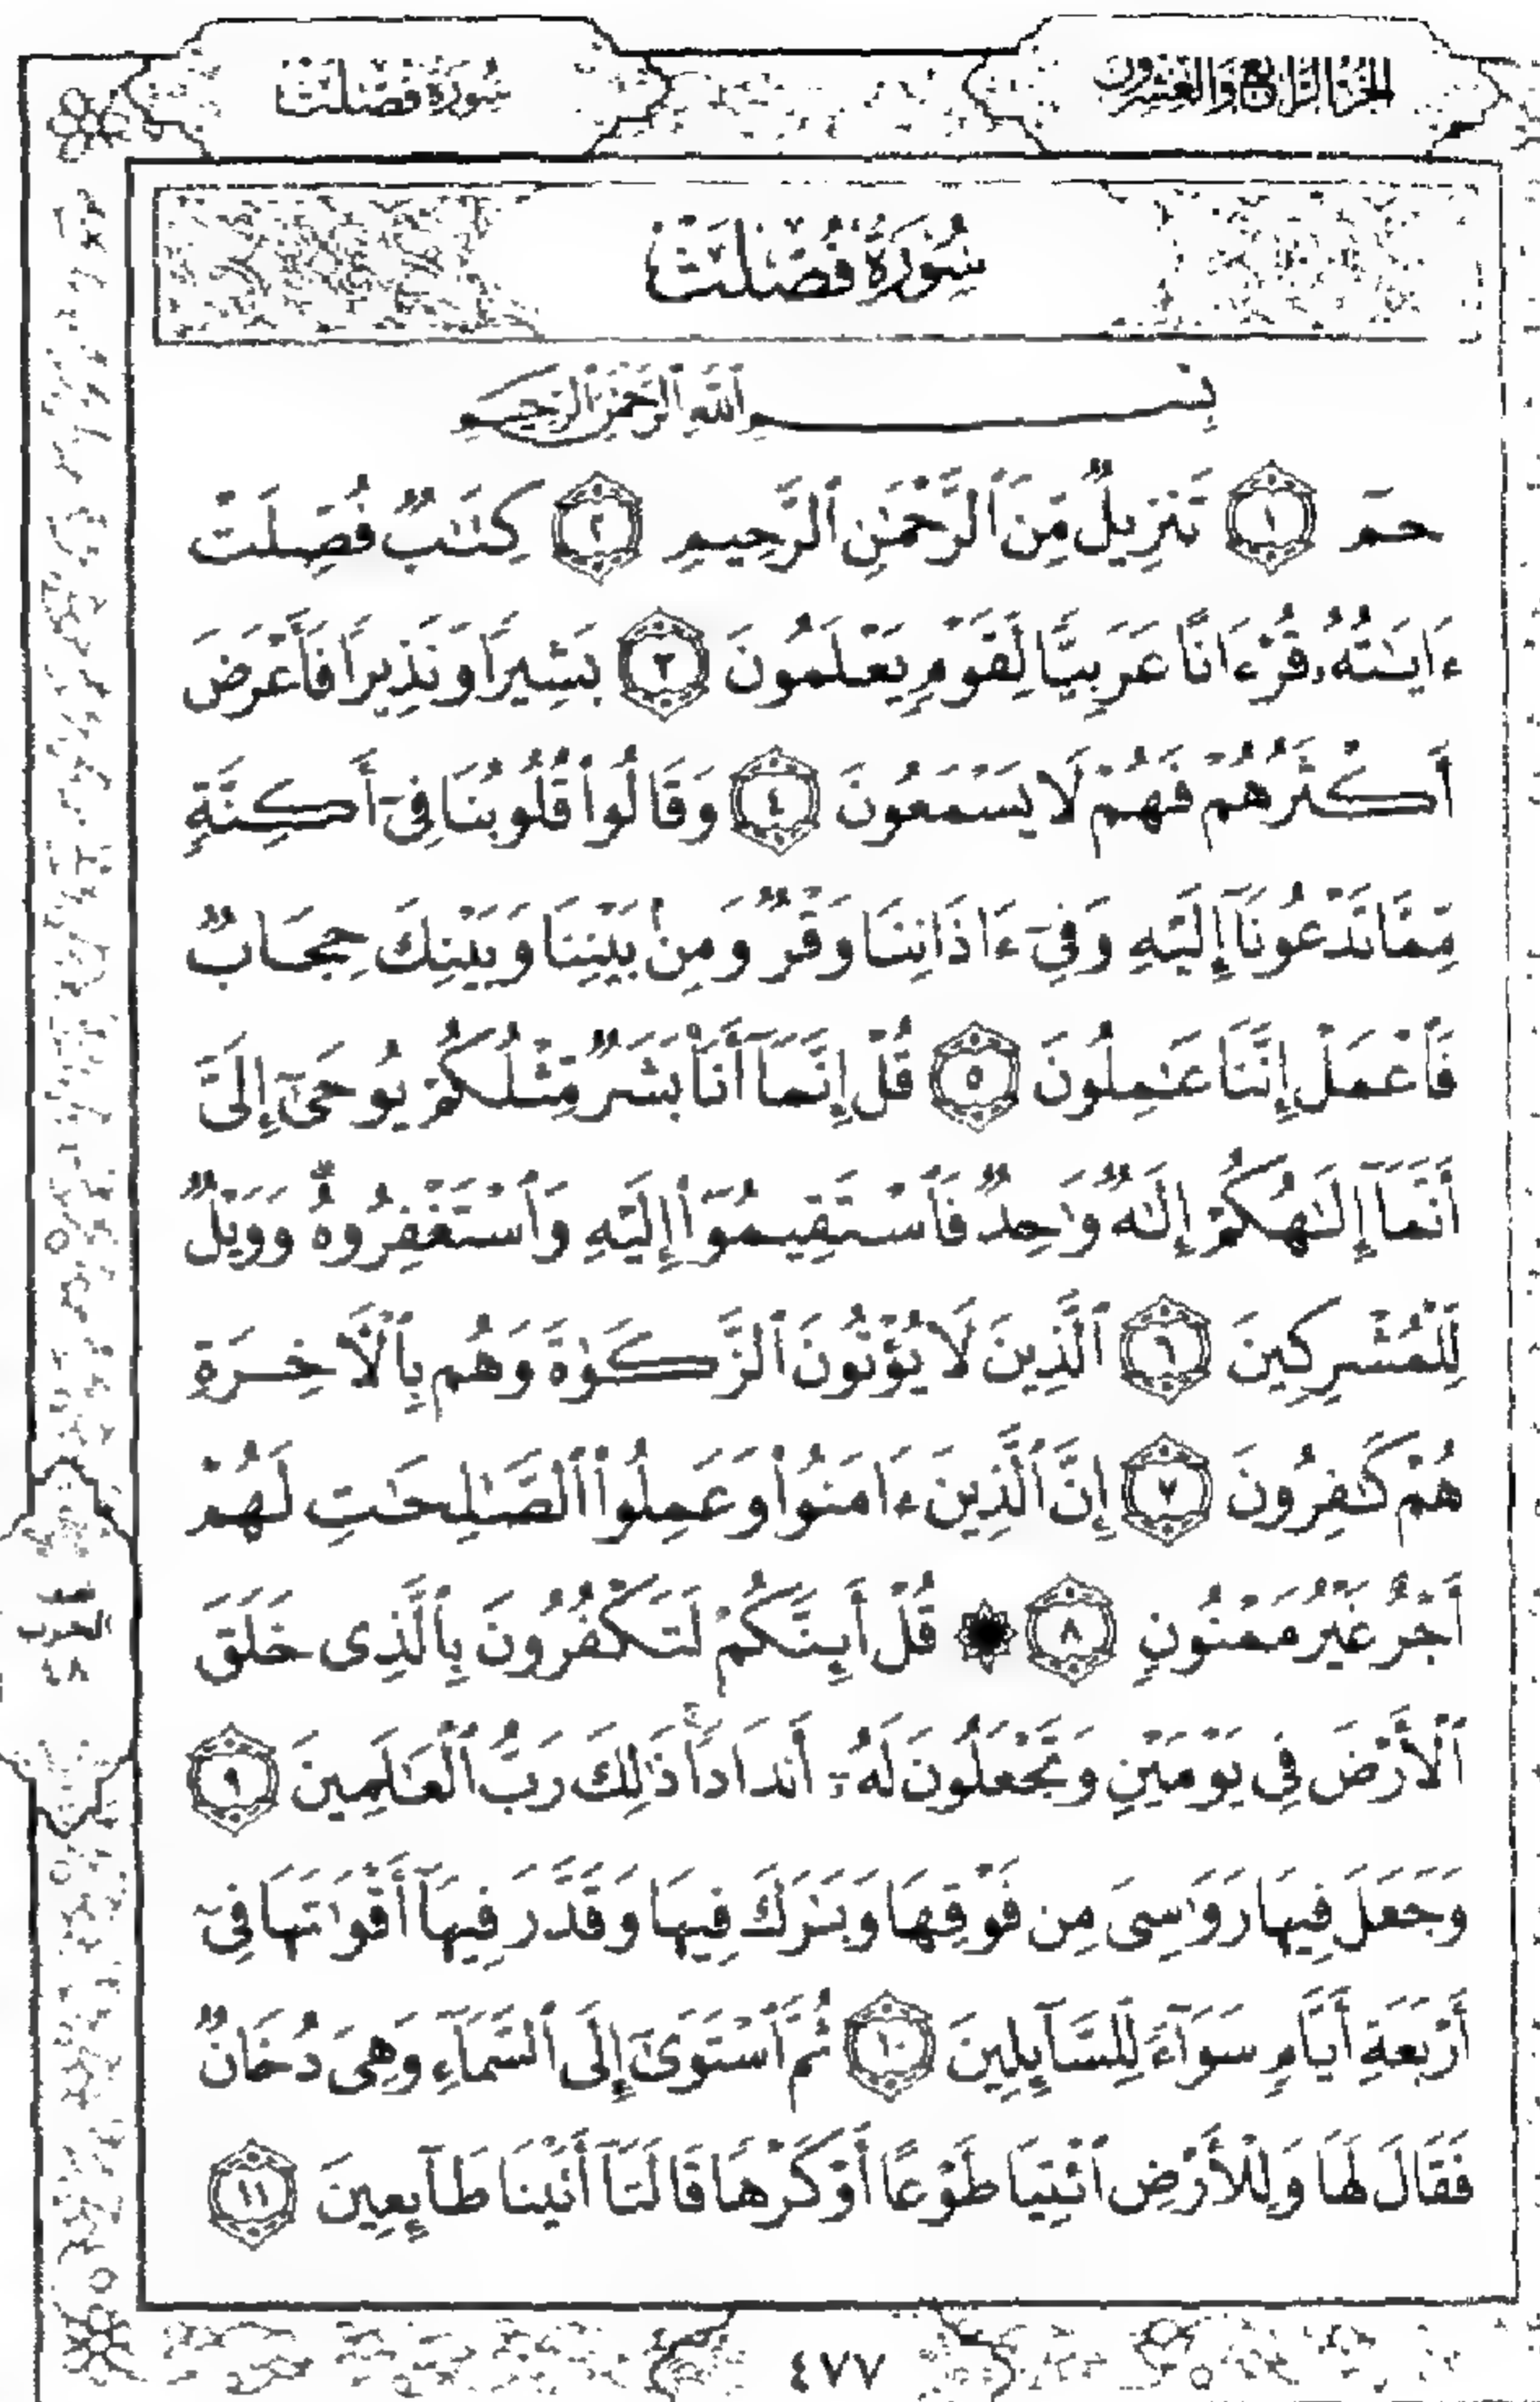 الجزء الرابع والعشرون
سُورَةُ فُصِّلَتْ
سُورَةُ فُصِّلَتْ
بِسْمِ ٱللَّهِ ٱلرَّحْمَٰنِ ٱلرَّحِيمِ
حمٓ ١ تَنزِيلٌ مِّنَ ٱلرَّحْمَٰنِ ٱلرَّحِيمِ ٢ كِتَٰبٌ فُصِّلَتْ
ءَايَٰتُهُۥ قُرْءَانًا عَرَبِيًّا لِّقَوْمٍ يَعْلَمُونَ ٣ بَشِيرًا وَنَذِيرًا فَأَعْرَضَ
أَكْثَرُهُمْ فَهُمْ لَا يَسْمَعُونَ ٤ وَقَالُوا۟ قُلُوبُنَا فِىٓ أَكِنَّةٍ
مِّمَّا تَدْعُونَآ إِلَيْهِ وَفِىٓ ءَاذَانِنَا وَقْرٌ وَمِنۢ بَيْنِنَا وَبَيْنِكَ حِجَابٌ
فَٱعْمَلْ إِنَّنَا عَٰمِلُونَ ٥ قُلْ إِنَّمَآ أَنَا۠ بَشَرٌ مِّثْلُكُمْ يُوحَىٰٓ إِلَىَّ
أَنَّمَآ إِلَٰهُكُمْ إِلَٰهٌ وَٰحِدٌ فَٱسْتَقِيمُوٓا۟ إِلَيْهِ وَٱسْتَغْفِرُوهُ ۗ وَوَيْلٌ
لِّلْمُشْرِكِينَ ٦ ٱلَّذِينَ لَا يُؤْتُونَ ٱلزَّكَوٰةَ وَهُم بِٱلْءَاخِرَةِ
هُمْ كَٰفِرُونَ ٧ إِنَّ ٱلَّذِينَ ءَامَنُوا۟ وَعَمِلُوا۟ ٱلصَّٰلِحَٰتِ لَهُمْ
أَجْرٌ غَيْرُ مَمْنُونٍ ٨ ۞ قُلْ أَئِنَّكُمْ لَتَكْفُرُونَ بِٱلَّذِى خَلَقَ
نصف
الحزب
٤٨
ٱلْأَرْضَ فِى يَوْمَيْنِ وَتَجْعَلُونَ لَهُۥٓ أَندَادًا ۚ ذَٰلِكَ رَبُّ ٱلْعَٰلَمِينَ ٩
وَجَعَلَ فِيهَا رَوَٰسِىَ مِن فَوْقِهَا وَبَٰرَكَ فِيهَا وَقَدَّرَ فِيهَآ أَقْوَٰتَهَا فِىٓ
أَرْبَعَةِ أَيَّامٍ سَوَآءً لِّلسَّآئِلِينَ ١٠ ثُمَّ ٱسْتَوَىٰٓ إِلَى ٱلسَّمَآءِ وَهِىَ دُخَانٌ
فَقَالَ لَهَا وَلِلْأَرْضِ ٱئْتِيَا طَوْعًا أَوْ كَرْهًا قَالَتَآ أَتَيْنَا طَآئِعِينَ ١١
٤٧٧